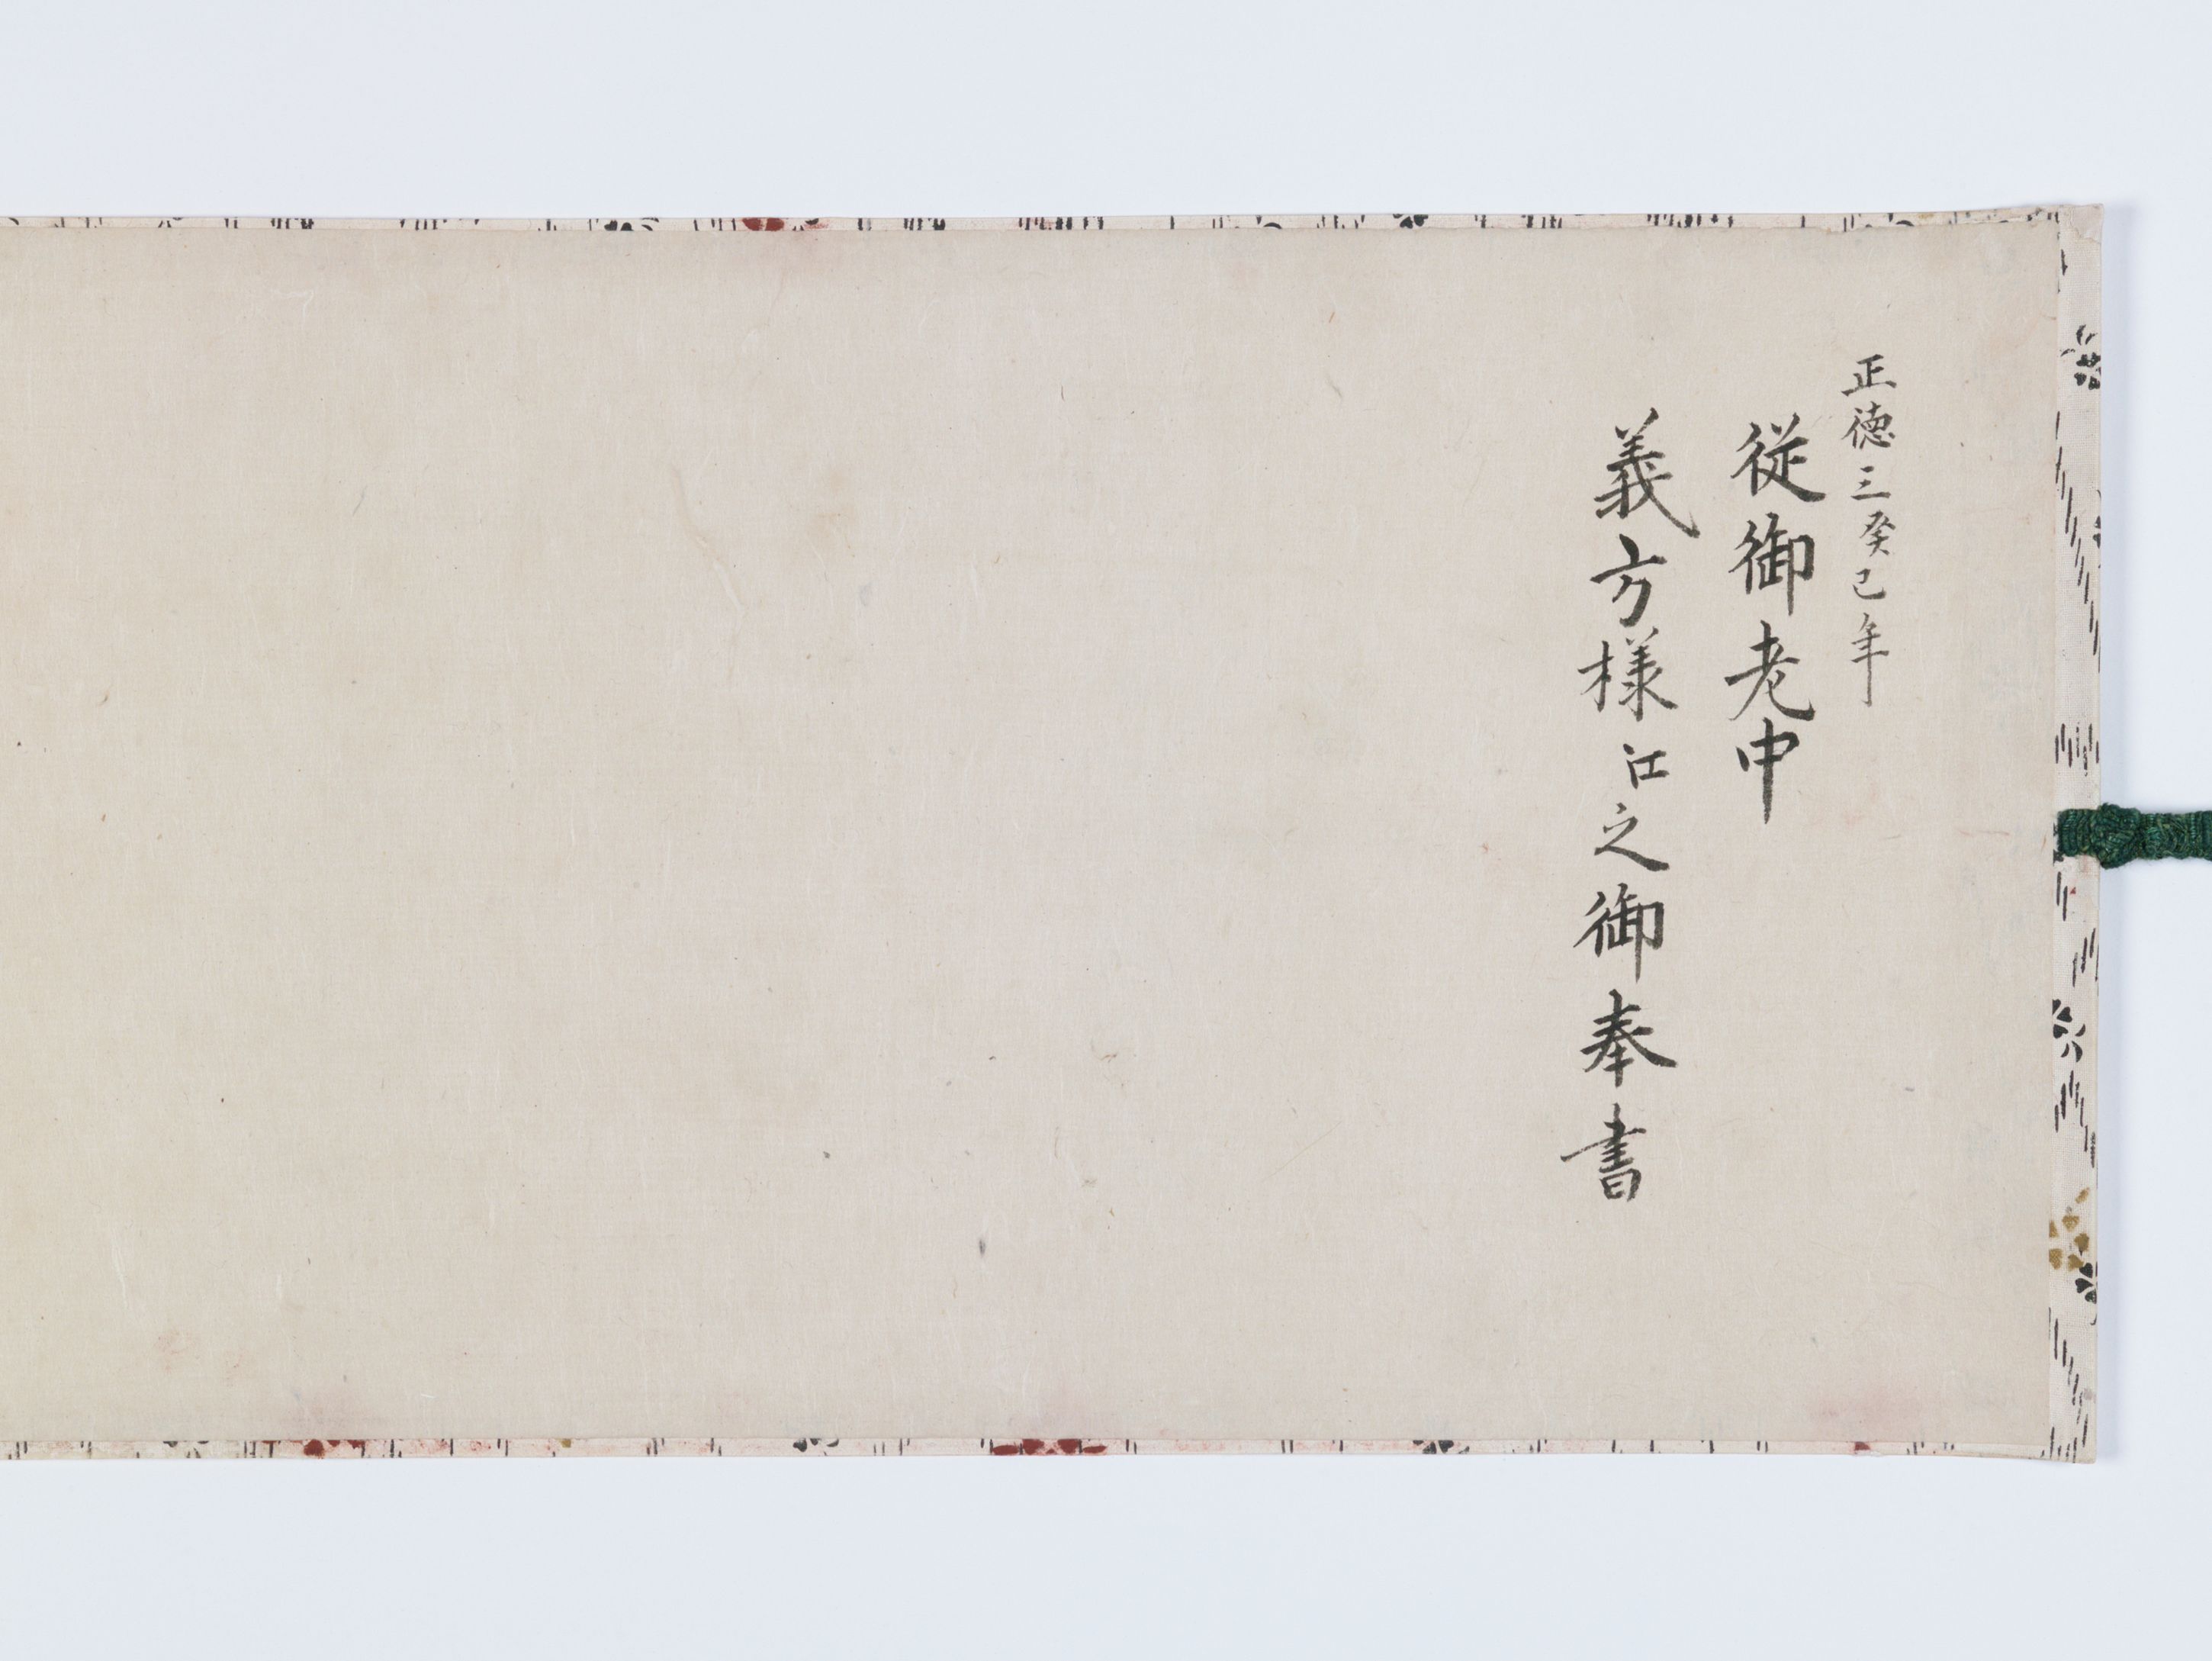 正徳三癸巳年
従御老中
義方様江之御奉書